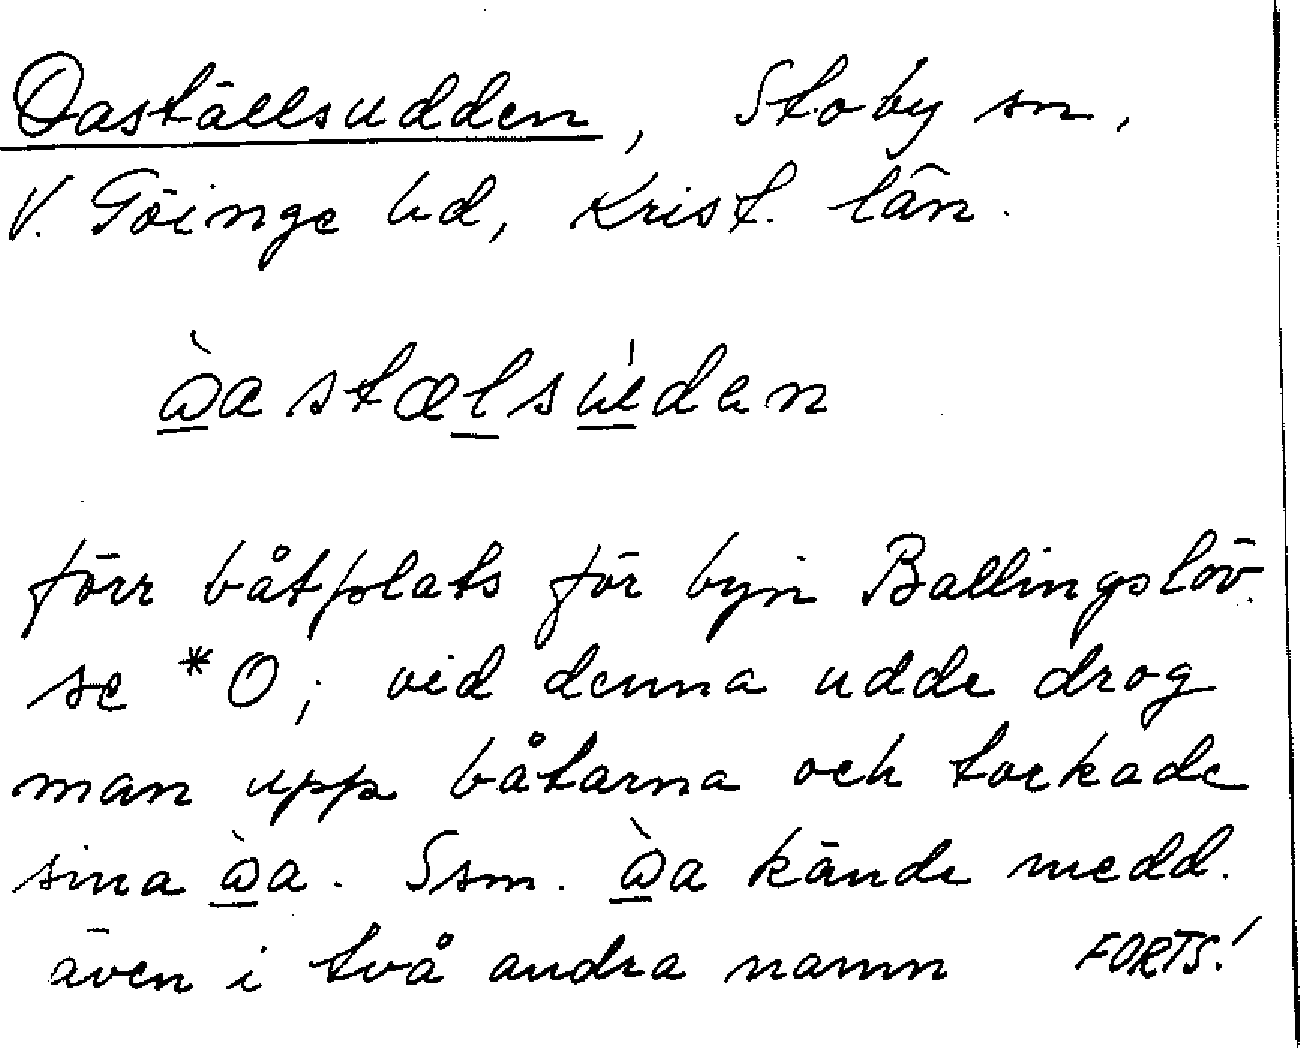 Oaställsudden, Stoby sn,
V. Göinge hd, Krist. län.
ὼastælsúdan
förr båtplats för byn Ballingslöv.
se *O; vid denna udde drog
man upp båtarna och torkade
sina ὼa. Ssm. ὼa kände medd.
även i två andra namn FORTS!